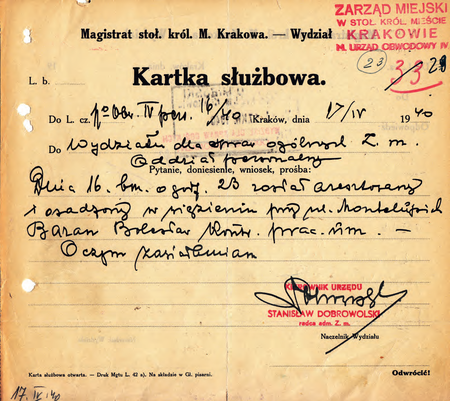 ZARZĄD MIEJSKI
W STOŁ. KRÓL. MIEŚCIE
KRAKOWIE
M. URZĄD OBWODOWY IV
Magistrat stoł. król. M. Krakowa. — Wydział
23
33
L. b.
Kartka służbowa.
Do L. cz. Obw. IV pers. 16/40 Kraków, dnia 17/IV 1940
Do Wydziału dla spraw ogólnych Z. m.
Oddział personalny
Pytanie, doniesienie, wniosek, prośba:
Dnia 16. bm. o godz. 23 został aresztowany
i osadzony w więzieniu przy ul. Montelupich
Baran Bolesław Kontr. prac. um. —
O czym zawiadamiam
KIEROWNIK URZĘDU
STANISŁAW DOBROWOLSKI
radca adm. Z. m.
Naczelnik Wydziału
Karta służbowa otwarta. — Druk Mgtu L. 42 a). Na składzie w Gł. pisarni.
Odwrócić!
17. IV. 40